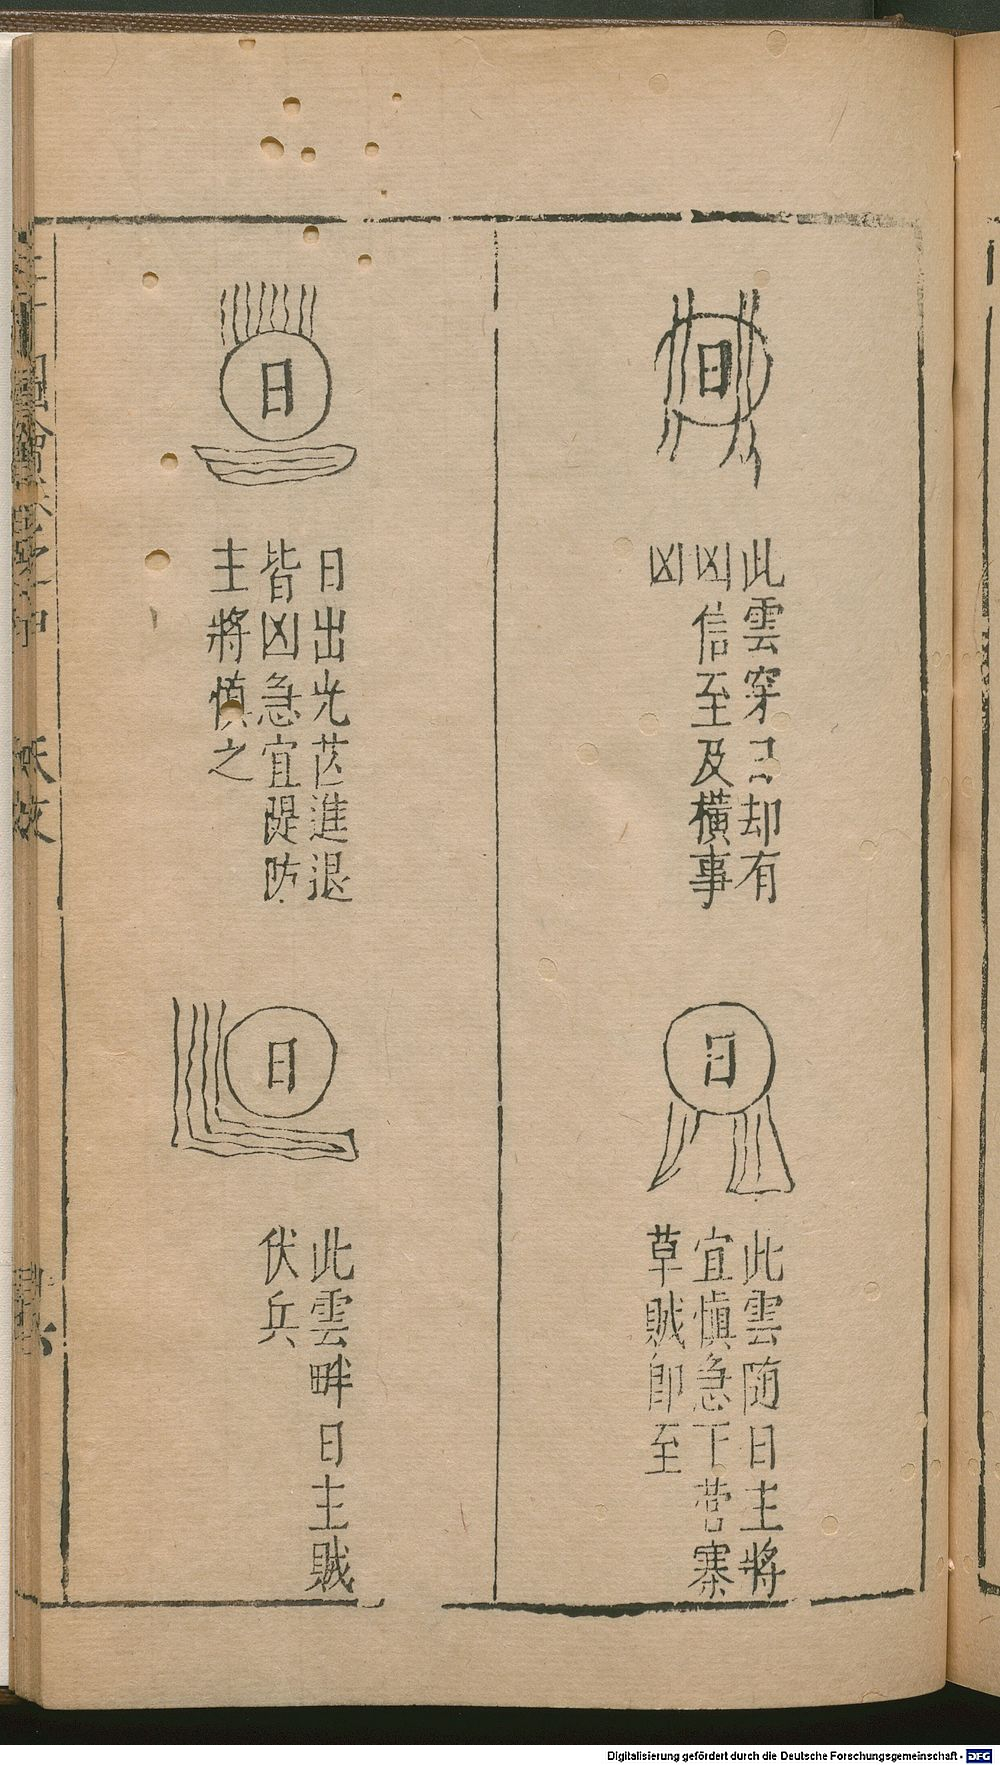 日
此雲穿日却有
凶信至及橫事
凶
日
此雲随日主將
宜慎急下營寨
草賊卽至
日
日出光芒進退
皆凶急宜隄防
主將慎之
日
此雲畔日主賊
伏兵
Digitalisierung gefördert durch die Deutsche Forschungsgemeinschaft - DFG